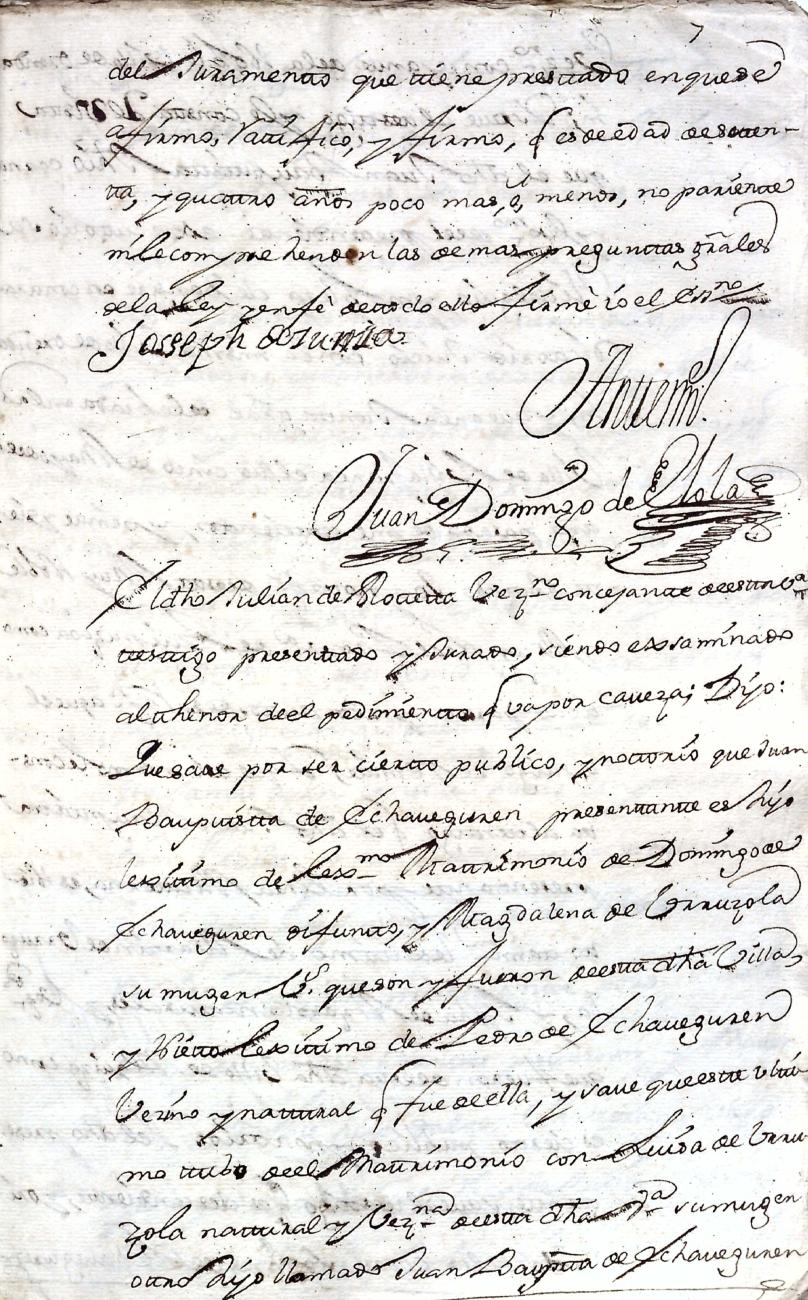 7
del Juramento que ttiene presttado en que se
afirmo, Rattificò, y firmò, q̃ es de edad de setten-
tta, y quattro años poco mas, ò, menos, no pariente
ni le comprehenden las demas preguntas grãles
de la Ley y en fè de todo ello firmè io el Essno
Joseph de Zunta
Antemi
Juan Domingo de Elola
El dho Julian de Rotetta Vezno concejante de esta va
testigo presenttado y Jurado, siendo exsaminado
al thenor de el pedimiento q̃ va por caveza; Dijo:
Que save por ser cierto publico, y nottorio que Juan
Baupttistta de Echaveguren presentante es hijo
lexitimo de Lexmo Mattrimonio de Domingo de
Echaveguren difunto, y Magdalena de Urruzola
su muger Vs. que son y fueron de esta dha Villa,
y Nietto Lexitimo de Pedro de Echaveguren
Vezino y nattural q̃ fue de ella, y save que este ulti-
mo ttubo de el Mattrimonio con Luisa de Urru
zola nattural y Vezna de esta dha Va su muger
ottro hijo llamado Juan Bauptta de Echaveguren